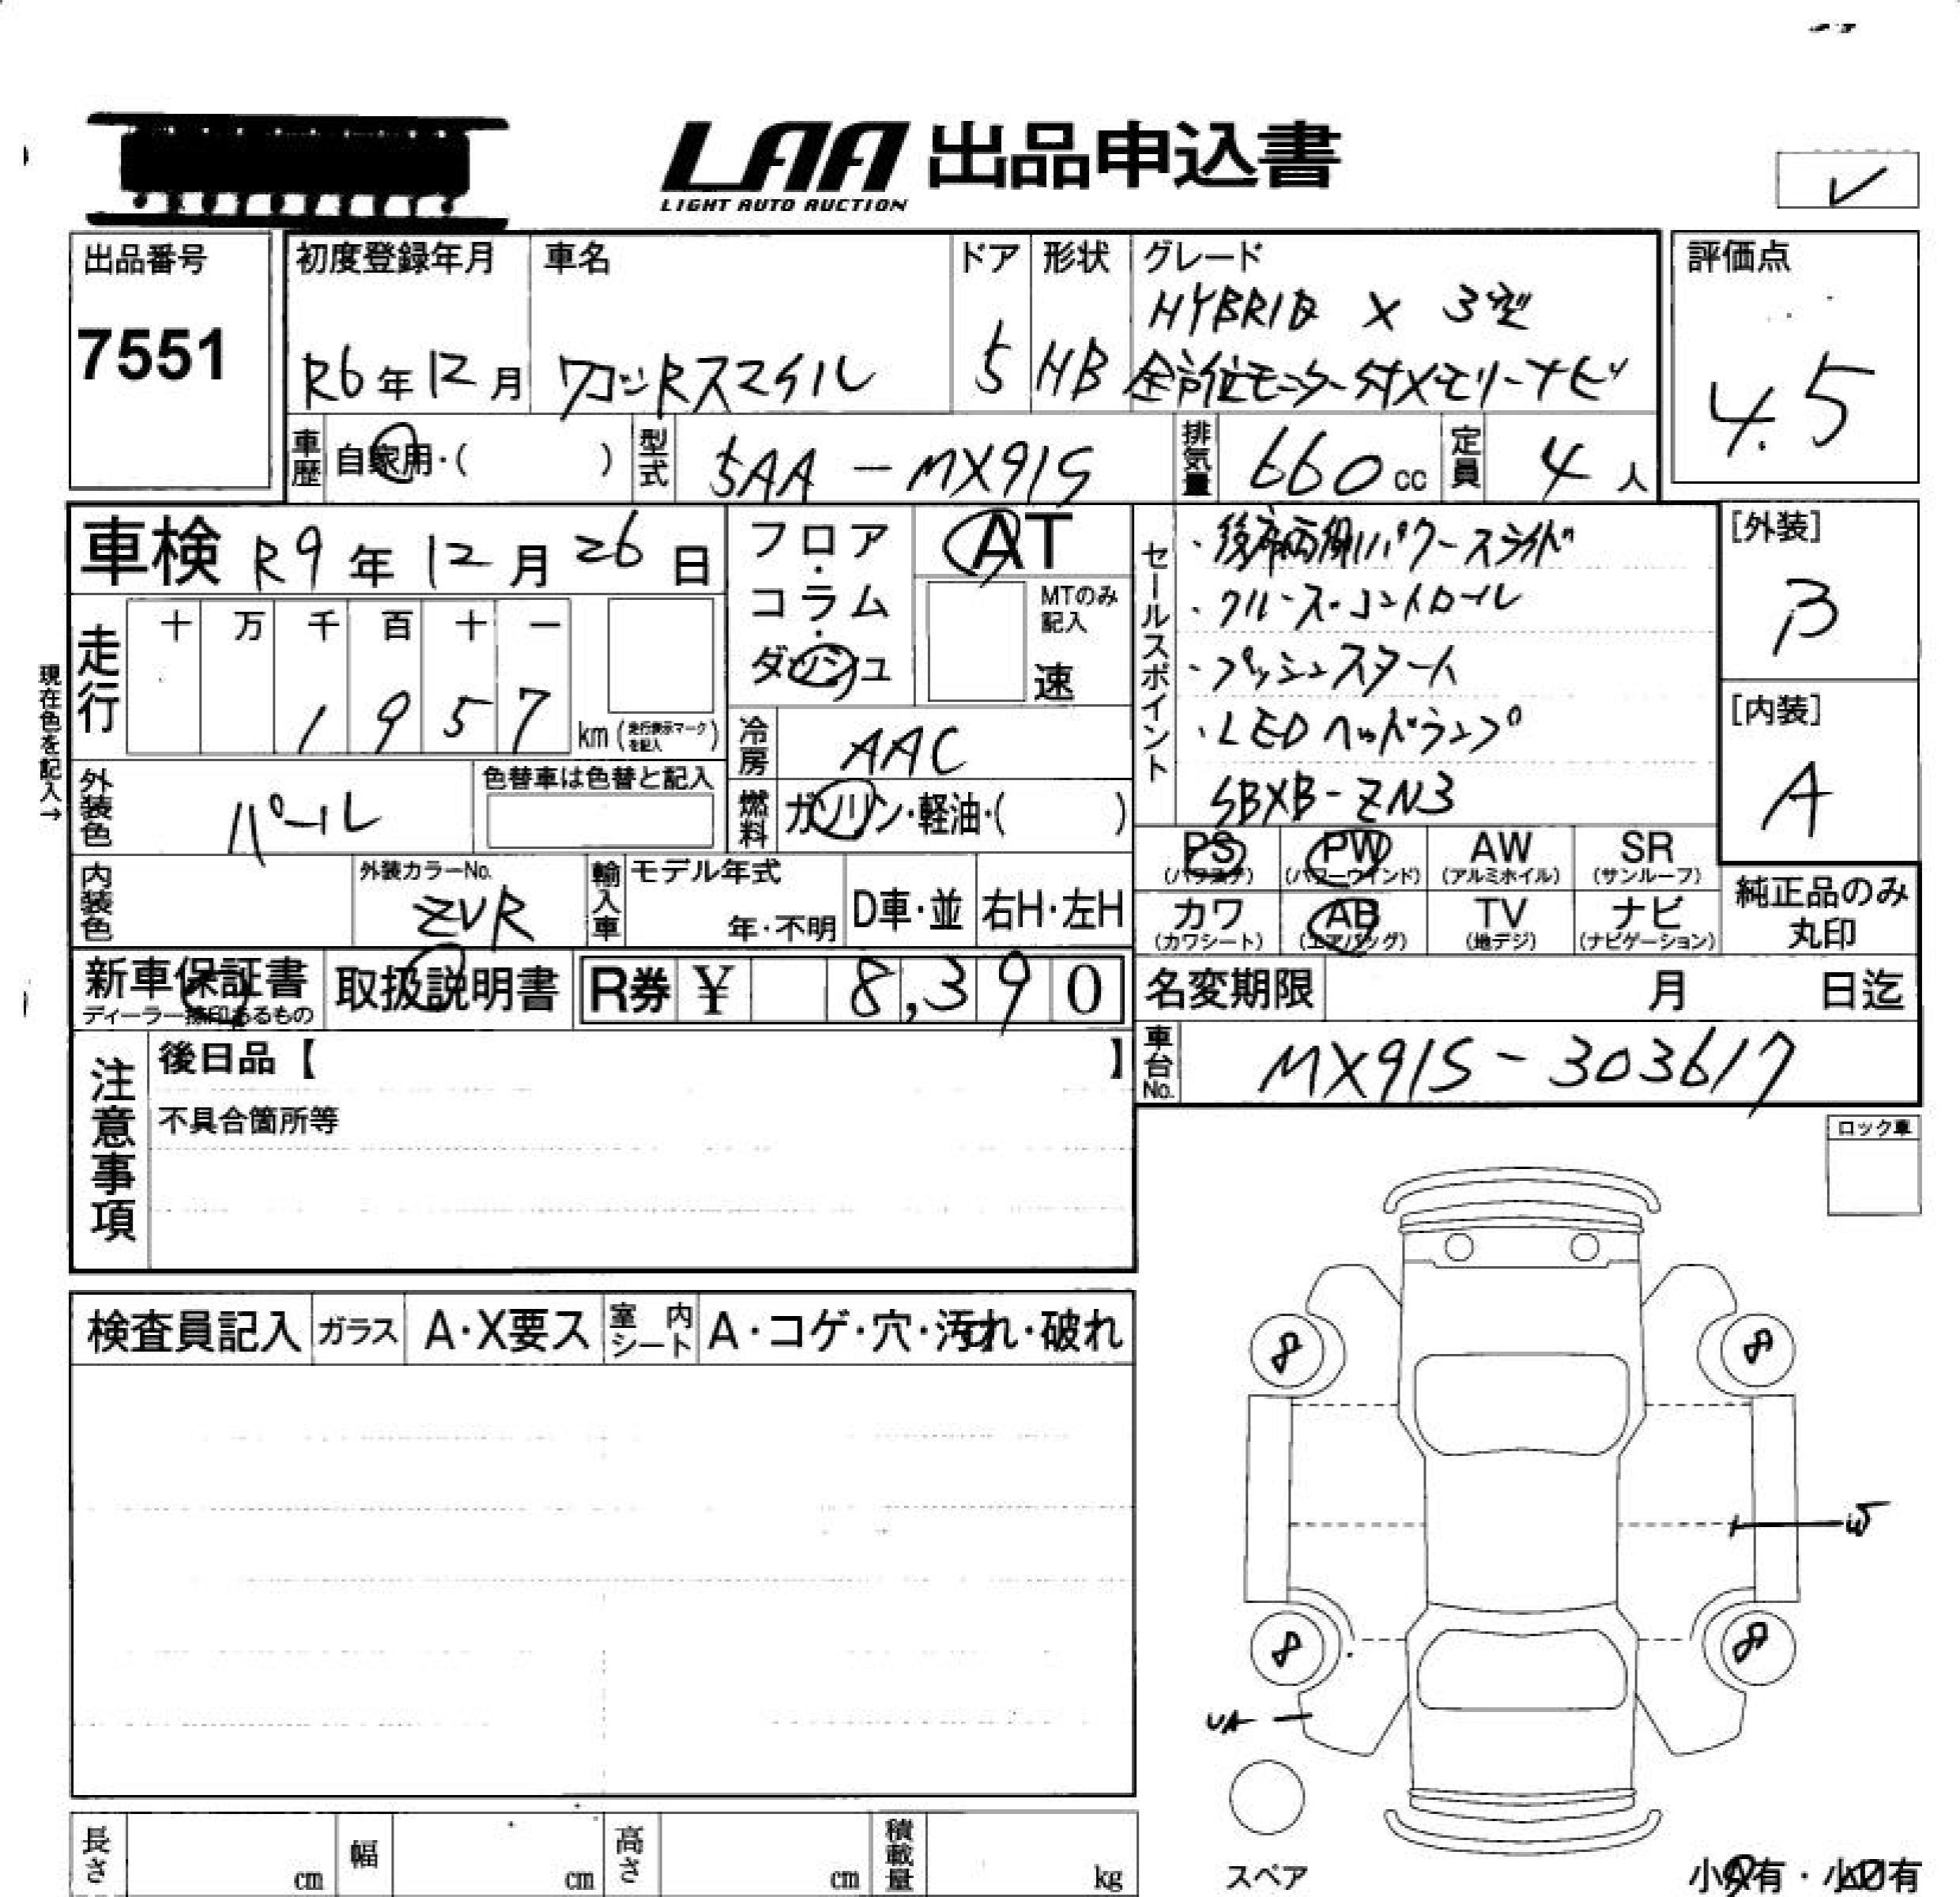 LAA 出品申込書
LIGHT AUTO AUCTION
出品番号
7551
初度登録年月
R6年12月
車名
ワゴンRスマイル
ドア
5
形状
HB
グレード
HYBRID X 3型
全方位モニター付メモリーナビ
評価点
4.5
車歴 自家用・( )
型式 5AA-MX91S
排気量 660cc
定員 4人
車検 R9年12月26日
フロア・コラム・ダッシュ
AT
MTのみ記入
速
セールスポイント
・後席両側パワースライド
・クルーズ・コントロール
・プッシュスタート
・LEDヘッドランプ
SBXB-ZN3
[外装]
B
[内装]
A
現在色を記入→
走行
十 万 千 百 十 一
1 9 5 7 km(走行表示マークを記入)
冷房 AAC
外装色 パール
色替車は色替と記入
燃料 ガソリン・軽油・( )
内装色
外装カラーNo.
ZVR
輸入車 モデル年式
年・不明
D車・並 右H・左H
PS (パワステ)
PW (パワーウインド)
AW (アルミホイル)
SR (サンルーフ)
カワ (カワシート)
AB (エアバッグ)
TV (地デジ)
ナビ (ナビゲーション)
純正品のみ
丸印
新車保証書
ディーラー捺印あるもの
取扱説明書
R券 ¥ 8,390
名変期限 月 日迄
車台No. MX91S-303617
注意事項
後日品【 】
不具合箇所等
ロック車
検査員記入 ガラス A・X要ス 室内シート A・コゲ・穴・汚れ・破れ
8 8
W
8 8
UA
スペア
長さ cm 幅 cm 高さ cm 積載量 kg
小A有・小U有